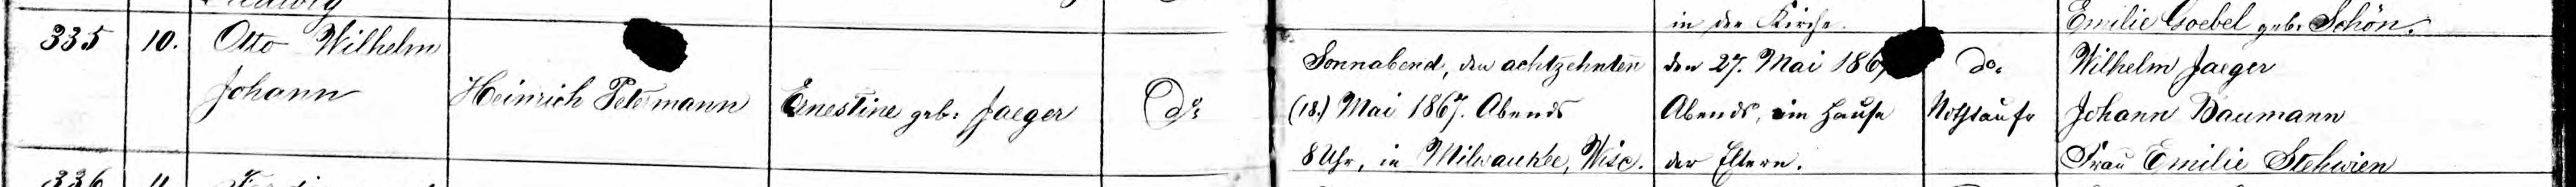 in der Kirche. Emilie Goebel geb. Schön.
335 10. Otto Wilhelm
Johann Heinrich Petermann Ernestine geb. Jaeger do.
Sonnabend, den achtzehnten
(18.) Mai 1867. Abends
8 Uhr, in Milwaukee, Wisc.
den 27. Mai 186
Abends, im Hause
der Eltern.
do.
Nothtaufe
Wilhelm Jaeger
Johann Baumann
Frau Emilie Stehwien
336 11.